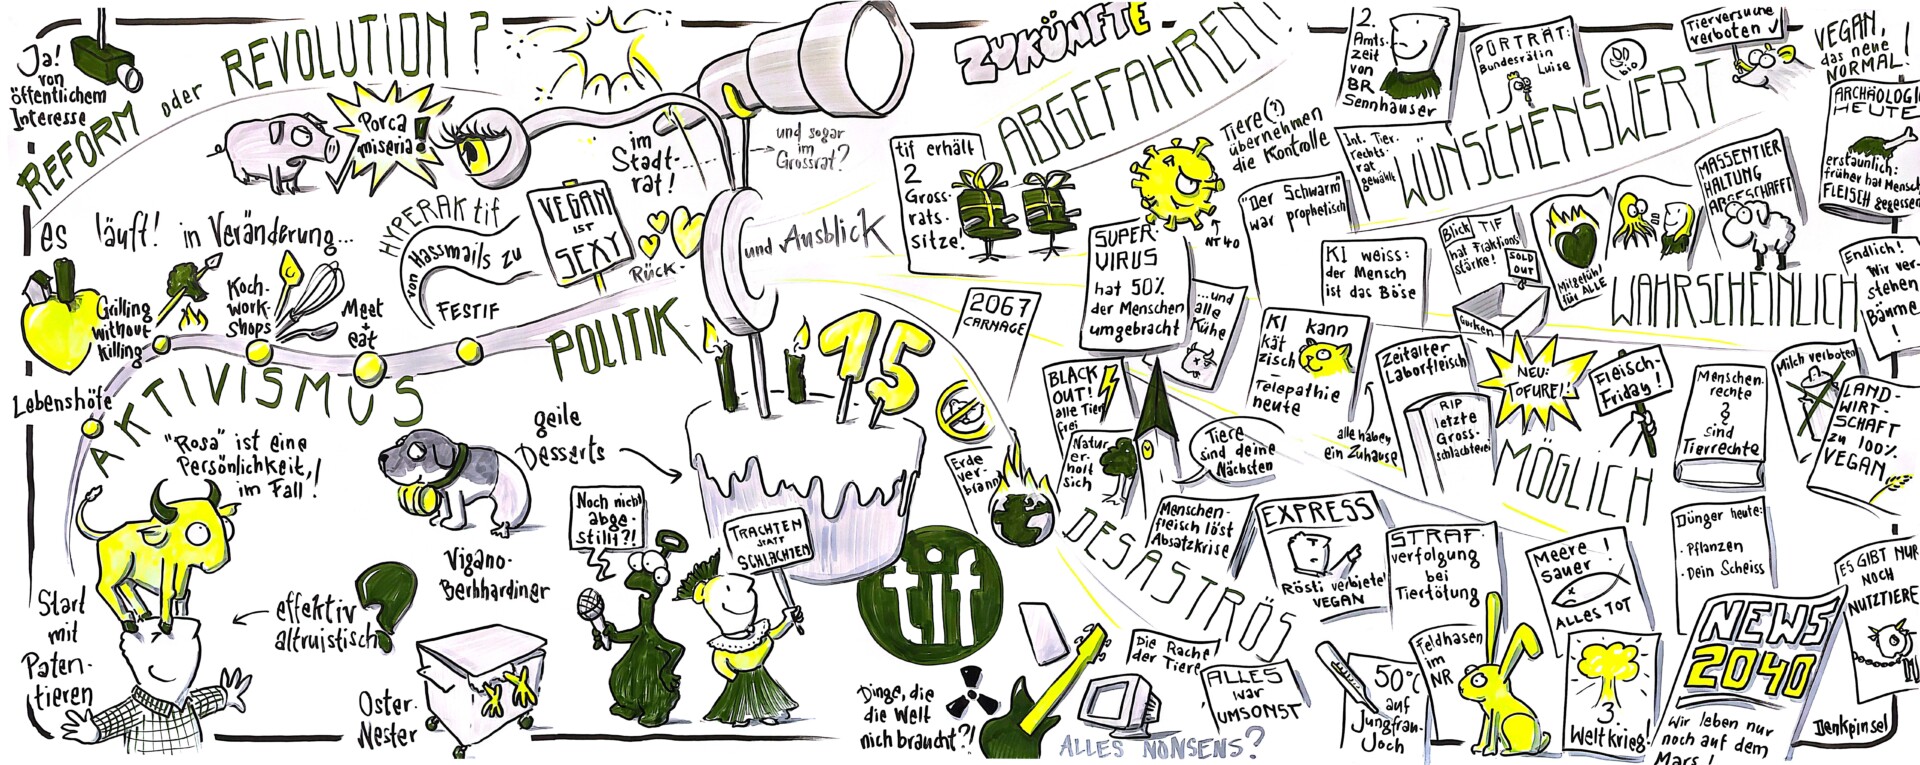 Ja!
von
öffentlichem
Interesse
REFORM oder REVOLUTION?
Porca
miseria!
es läuft! in Veränderung...
HYPERAKtif
von Hassmails zu
FESTIF
VEGAN
IST
SEXY
im
Stadt-
rat!
und sogar
im
Grossrat?
Rück-
und Ausblick
Grilling
without
killing
Koch-
work-
shops
Meet
+
eat
Lebenshöfe
AKTIVISMUS
POLITIK
15
"Rosa" ist eine
Persönlichkeit,
im Fall!
geile
Desserts
Start
mit
Paten-
tieren
effektiv
altruistisch
Vigano-
Berhhardiner
Oster-
Nester
Noch nicht
abge-
stillt?!
TRACHTEN
STATT
SCHLACHTEN
tif
ZUKÜNFTE
ABGEFAHREN!
tif erhält
2
Gross-
rats-
sitze!
NT 40
Tiere(?)
übernehmen
die Kontrolle
SUPER-
VIRUS
hat 50%
der Menschen
umgebracht
...und
alle
Kühe
2067
CARNAGE
"Der Schwarm"
war prophetisch
KI weiss:
der Mensch
ist das Böse
KI kann
kät
zisch
-
Telepathie
heute
alle haben
ein Zuhause
BLACK
OUT!
alle Tier
frei
Natur
er-
holt
sich
Erde
ver-
brannt
Tiere
sind deine
Nächsten
DESASTRÖS
Menschen-
fleisch löst
Absatzkrise
EXPRESS
Rösti verbietet
VEGAN
STRAF-
verfolgung
bei
Tiertötung
Meere!
sauer
ALLES TOT
Die Rache
der Tiere
ALLES
war
UMSONST
50°C
auf
Jungfrau-
Joch
Feldhasen
im
NR
3.
Weltkrieg!
NEWS
2040
Wir leben nur
noch auf dem
Mars!
Dinge, die
die Welt
nich braucht?!
ALLES NONSENS?
WÜNSCHENSWERT
2.
Amts-
zeit
von
BR
Sennhauser
PORTRÄT:
Bundesrätin
Luise
bio
Tierversuche
verboten
VEGAN,
das neue
NORMAL!
Int. Tier-
rechts-
rat
gewählt
MASSENTIER
HALTUNG
ABGESCHAFFT
ARCHÄOLOGIE
HEUTE
erstaunlich:
früher hat Mensch
FLEISCH gegessen
Blick TIF
hat Fraktions-
stärke!
SOLD
OUT
Gurken
Mitgefühl
für ALLE
WAHRSCHEINLICH
Endlich!
Wir ver-
stehen
Bäume
!
Zeitalter
Laborfleisch
RIP
letzte
Gross-
schlachterei
NEU:
TOFUREI!
Fleisch-
Friday!
MÖGLICH
Menschen-
rechte
sind
Tierrechte
Milch verboten
LAND-
WIRT-
SCHAFT
zu 100%
VEGAN
Dünger heute:
- Pflanzen
- Dein Scheiss
ES GIBT NUR
NOCH
NUTZTIERE
Denkpinsel